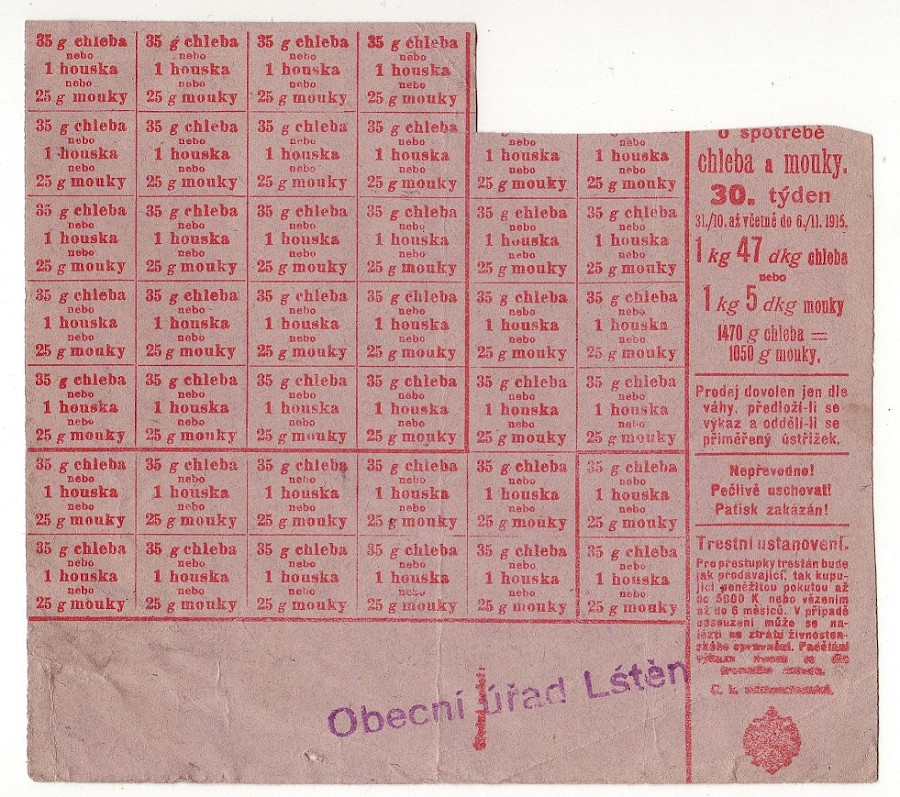 35 g chleba 35 g chleba 35 g chleba 35 g chleba
nebo nebo nebo nebo
1 houska 1 houska 1 houska 1 houska
nebo nebo nebo nebo
25 g mouky 25 g mouky 25 g mouky 25 g mouky
35 g chleba 35 g chleba 35 g chleba 35 g chleba
nebo nebo nebo nebo nebo nebo
1 houska 1 houska 1 houska 1 houska 1 houska 1 houska
nebo nebo nebo nebo nebo nebo
25 g mouky 25 g mouky 25 g mouky 25 g mouky 25 g mouky 25 g mouky
35 g chleba 35 g chleba 35 g chleba 35 g chleba 35 g chleba 35 g chleba
nebo nebo nebo nebo nebo nebo
1 houska 1 houska 1 houska 1 houska 1 houska 1 houska
nebo nebo nebo nebo nebo nebo
25 g mouky 25 g mouky 25 g mouky 25 g mouky 25 g mouky 25 g mouky
35 g chleba 35 g chleba 35 g chleba 35 g chleba 35 g chleba 35 g chleba
nebo nebo nebo nebo nebo nebo
1 houska 1 houska 1 houska 1 houska 1 houska 1 houska
nebo nebo nebo nebo nebo nebo
25 g mouky 25 g mouky 25 g mouky 25 g mouky 25 g mouky 25 g mouky
35 g chleba 35 g chleba 35 g chleba 35 g chleba 35 g chleba 35 g chleba
nebo nebo nebo nebo nebo nebo
1 houska 1 houska 1 houska 1 houska 1 houska 1 houska
nebo nebo nebo nebo nebo nebo
25 g mouky 25 g mouky 25 g mouky 25 g mouky 25 g mouky 25 g mouky
35 g chleba 35 g chleba 35 g chleba 35 g chleba 35 g chleba 35 g chleba
nebo nebo nebo nebo nebo nebo
1 houska 1 houska 1 houska 1 houska 1 houska 1 houska
nebo nebo nebo nebo nebo nebo
25 g mouky 25 g mouky 25 g mouky 25 g mouky 25 g mouky 25 g mouky
35 g chleba 35 g chleba 35 g chleba 35 g chleba 35 g chleba 35 g chleba
nebo nebo nebo nebo nebo nebo
1 houska 1 houska 1 houska 1 houska 1 houska 1 houska
nebo nebo nebo nebo nebo nebo
25 g mouky 25 g mouky 25 g mouky 25 g mouky 25 g mouky 25 g mouky
o spotřebě
chleba a mouky.
30. týden
31./10. až včetně do 6./11. 1915.
1 kg 47 dkg chleba
nebo
1 kg 5 dkg mouky
1470 g chleba =
1050 g mouky.
Prodej dovolen jen dle
váhy, předloží-li se
výkaz a oddělí-li se
přiměřený ústřižek.
Nepřevodno!
Pečlivě uschovat!
Patisk zakázán!
Trestní ustanovení.
Pro přestupky trestán bude
jak prodávající, tak kupu-
jící peněžitou pokutou až
do 5000 K nebo vězením
až do 6 měsíců. V případě
odsouzení může se na-
lézti na ztrátu živnosten-
ského oprávnění. Padělání
C. k. místodržitelství.
Obecní úřad Lštěn